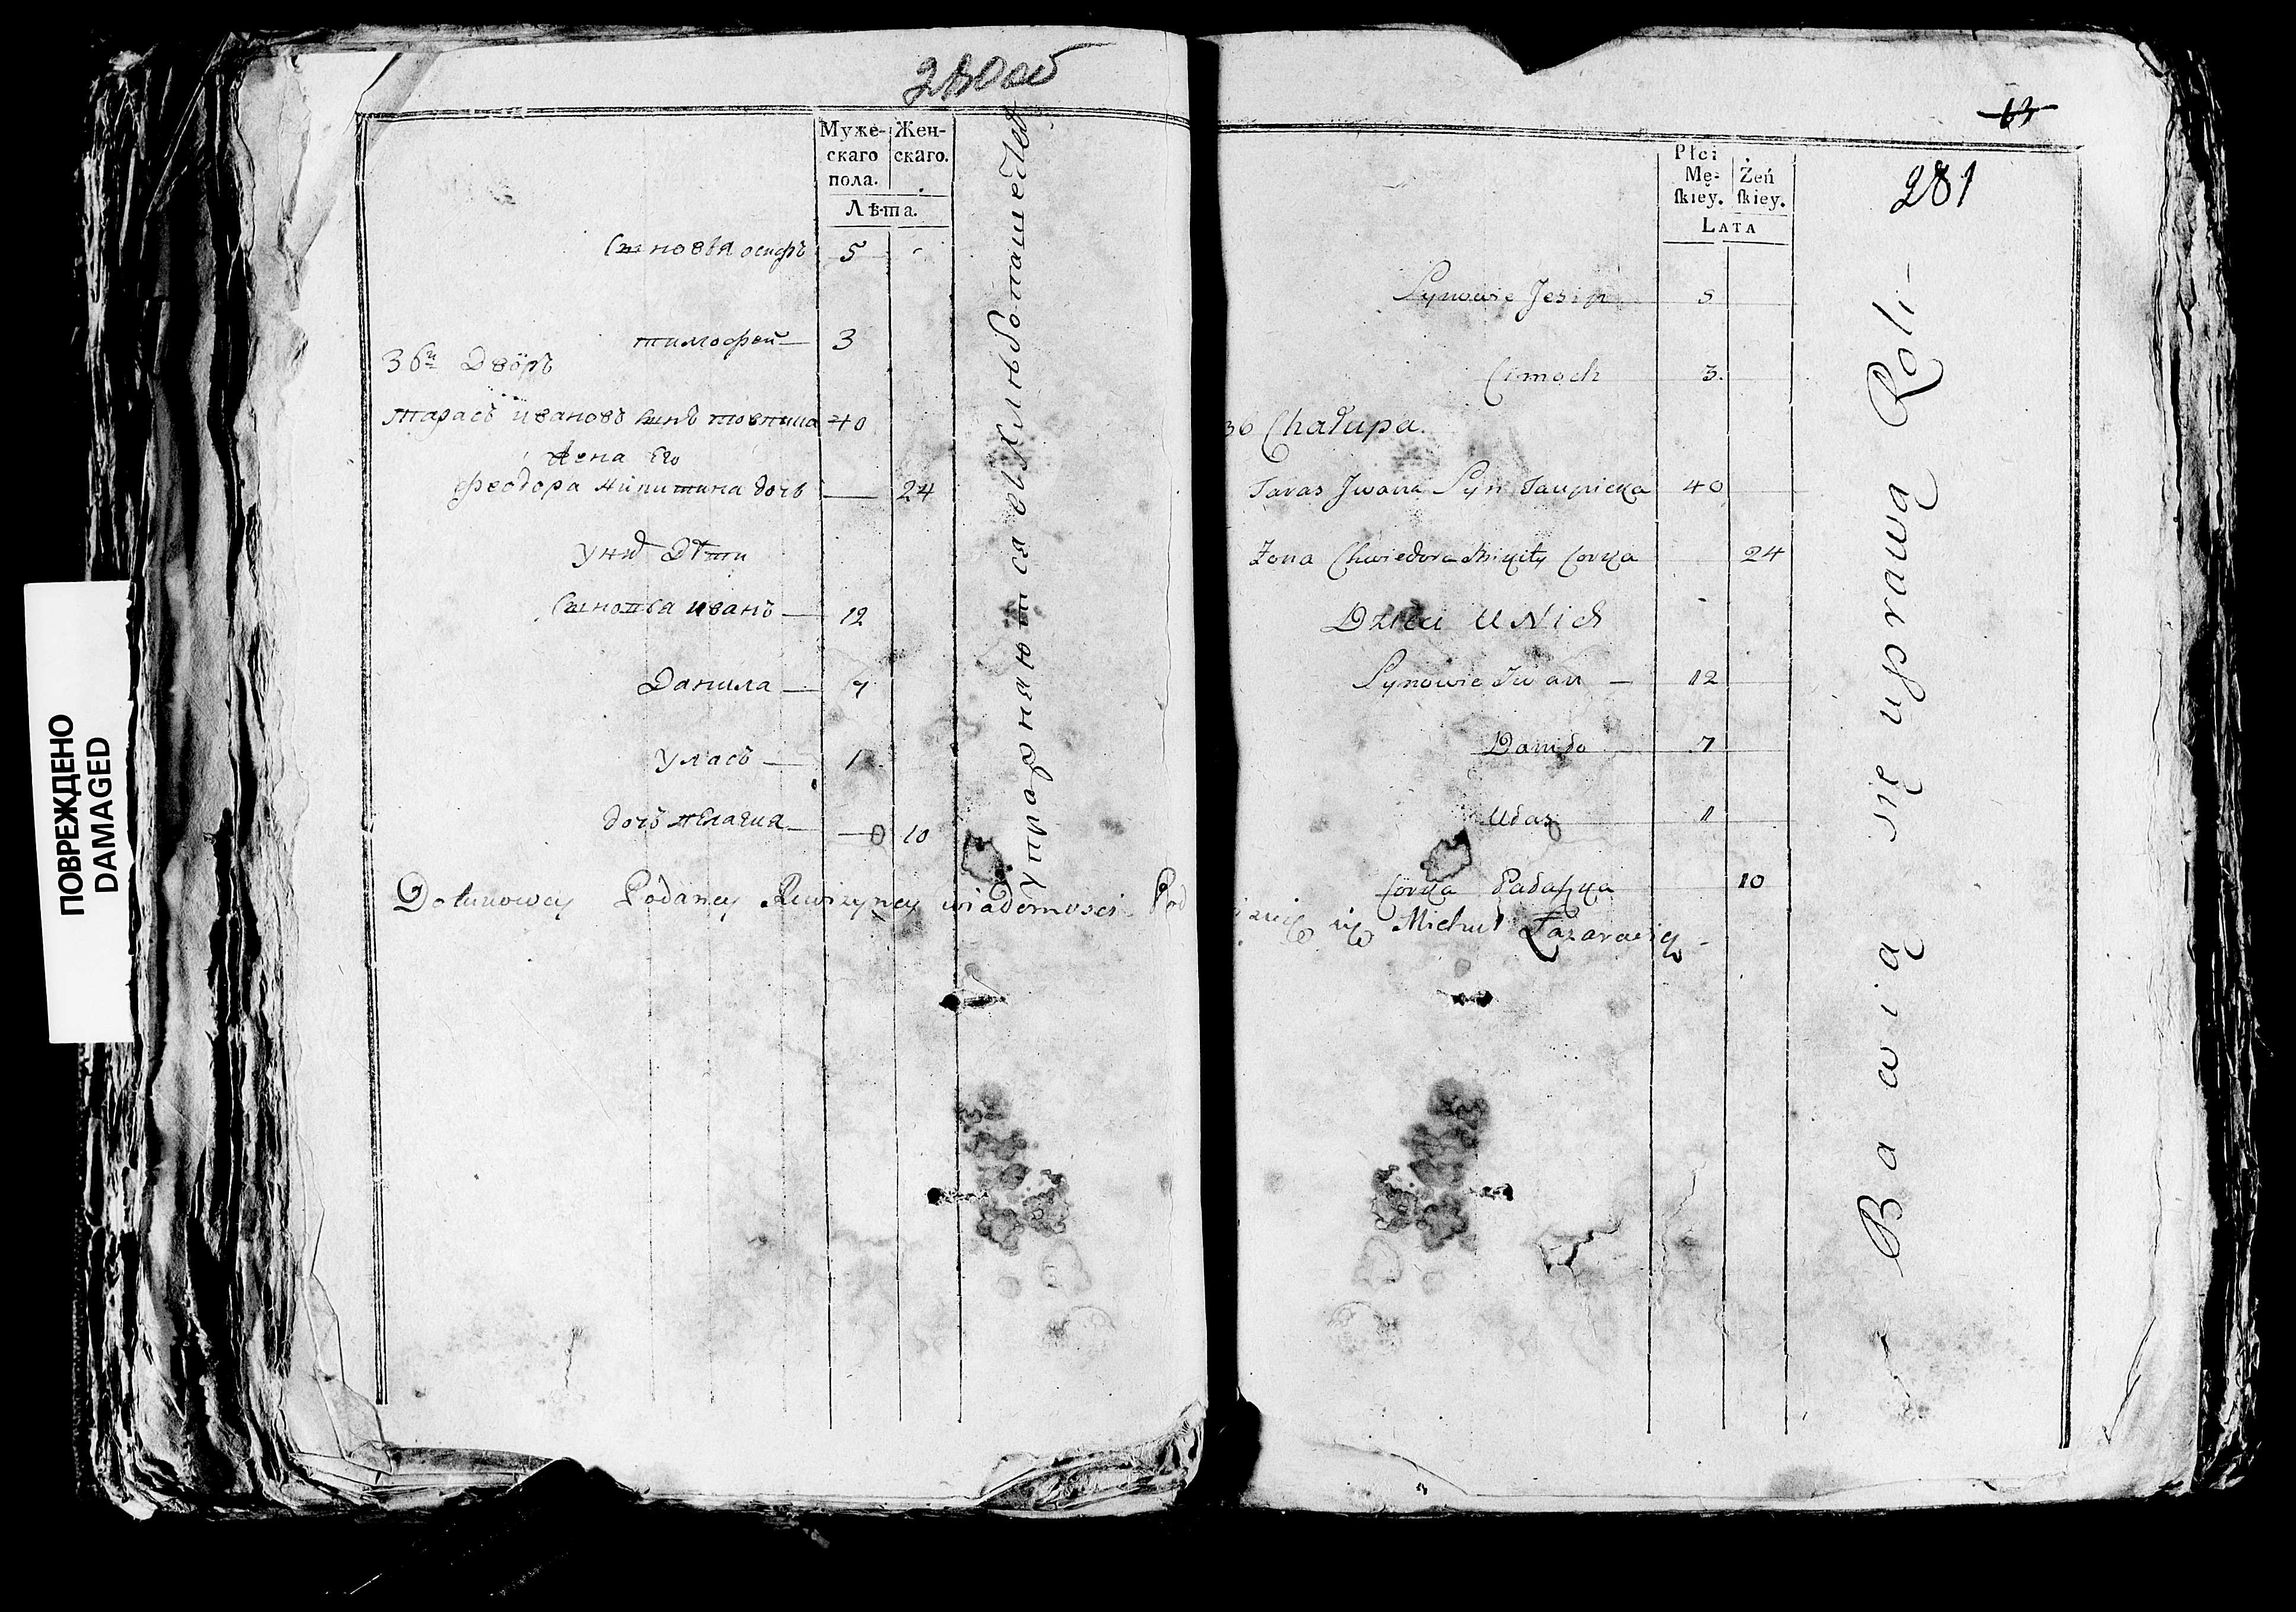 ПОВРЕЖДЕНО
DAMAGED
280об
Муже-
скаго
пола.
Жен-
скаго.
Лѣта.
Сыновья осифъ 5
тимофей 3
36й Дворъ
тарасъ ивановъ сынъ 40
Жена Его
феодора дочь 24
У нихъ Дѣти
Сыновья иванъ 12
Данила 7
Уласъ 1
дочь пелагия 0 10
упражняются в
13
281
Płci
Mę-
skiey.
Żeń
skiey.
LATA
Synowie Jesip 5
Cimoch 3.
36 Chałupa.
Taras Jwana Syn 40
Żona Chwiedora Mikity Corka 24
Dzieci u Nich
Synowie Iwan 12
Daniło 7
Ułas 1
Corka 10
Bawią się uprawą Roli
Podaney Rewizyney wiadomosci Pod
się Michał Łazarewicz